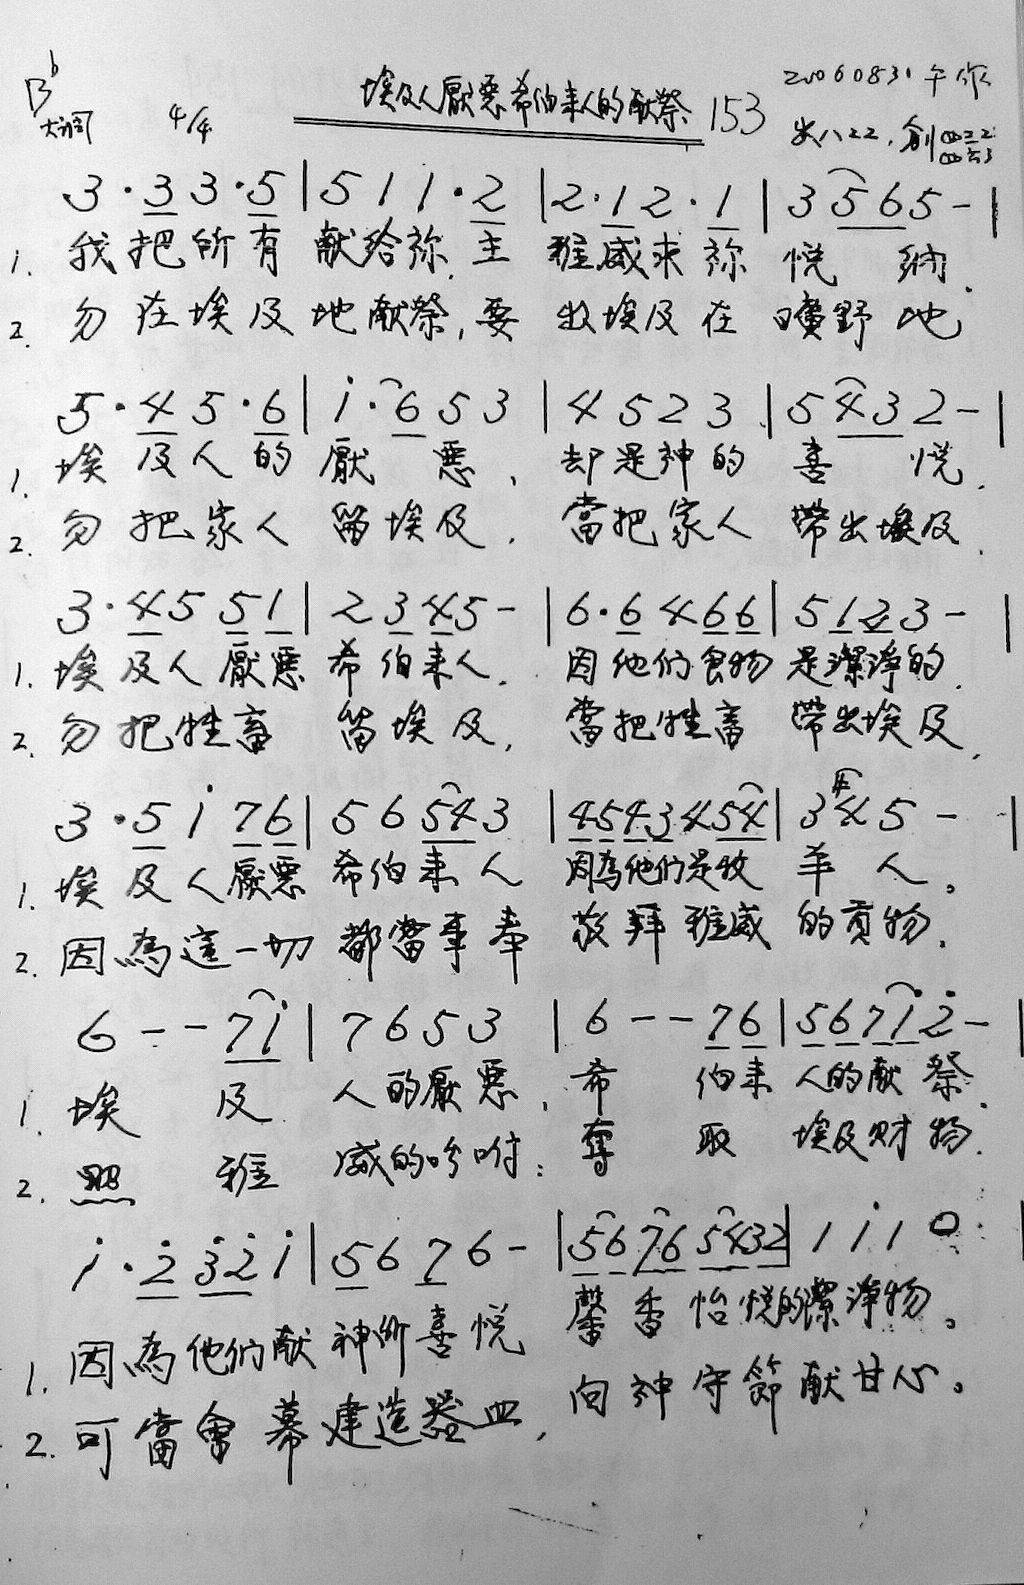 埃及人厭惡希伯来人的献祭 153
20060831午作
B♭大调 4/4
出八22,創四三2 四六3
3·3 3·5 | 5 1 1·2 | 2·1 2·1 | 3 5 6 5 - |
1. 我把所有献给祢,主雅威求祢悦纳.
2. 勿在埃及地献祭,要出埃及在曠野地
5·4 5·6 | i·6 5 3 | 4 5 2 3 | 5 4 3 2 - |
1. 埃及人的厭惡,却是神的喜悦.
2. 勿把家人留埃及,當把家人帶出埃及.
3·4 5 5 1 | 2 3 4 5 - | 6·6 4 6 6 | 5 1 2 3 - |
1. 埃及人厭惡希伯来人.因他们食物是潔净的.
2. 勿把牲畜留埃及,當把牲畜帶出埃及.
3·5 i 7 6 | 5 6 5 4 3 | 4 5 4 3 4 5 4 | 3 #4 5 - |
1. 埃及人厭惡希伯来人因為他们是牧羊人。
2. 因為這一切都當事奉敬拜雅威的貢物.
6 - - 7 i | 7 6 5 3 | 6 - - 7 6 | 5 6 7 i 2 - |
1. 埃及人的厭惡,希伯来人的献祭.
2. 照雅威的吩咐:奪取埃及财物.
i·2 3 2 i | 5 6 7 6 - | 5 6 7 6 5 4 3 2 | 1 i 1 0 |
1. 因為他们献神所喜悦馨香怡悦的潔净物。
2. 可當會幕建造器皿,向神守節献甘心。